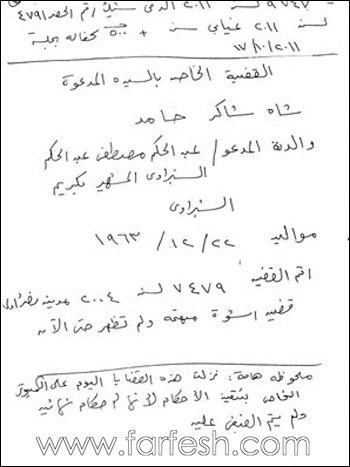 لسنة ٢٠١١ الدقى سنين رقم الحصر ٤٧٩١
لسنة ٢٠١١ غيابي سنه + ٥٠٠ كفاله بجلسة
١٧/١٠/٢٠١١
القضية الخاصه بالسيده المدعوة
شاه شاكر حامد
والدة المدعو / عبد الحكم مصطفى عبد الحكم
الشبراوى الشهير بكريم
الشبراوى
مواليد ٢٢/ ١٢/ ١٩٦٣
رقم القضيه ٧٤٧٩ لسنة ٢٠٠٤ مدنيه
قضيه ولم تظهر حتى الآن
ملحوظه هامة: نزلت هذه القضايا اليوم على الكمبيوتر
الخاص بتنفيذ الأحكام لأنها احكام نهائيه
ولم يتم القبض عليه
www.farfesh.com